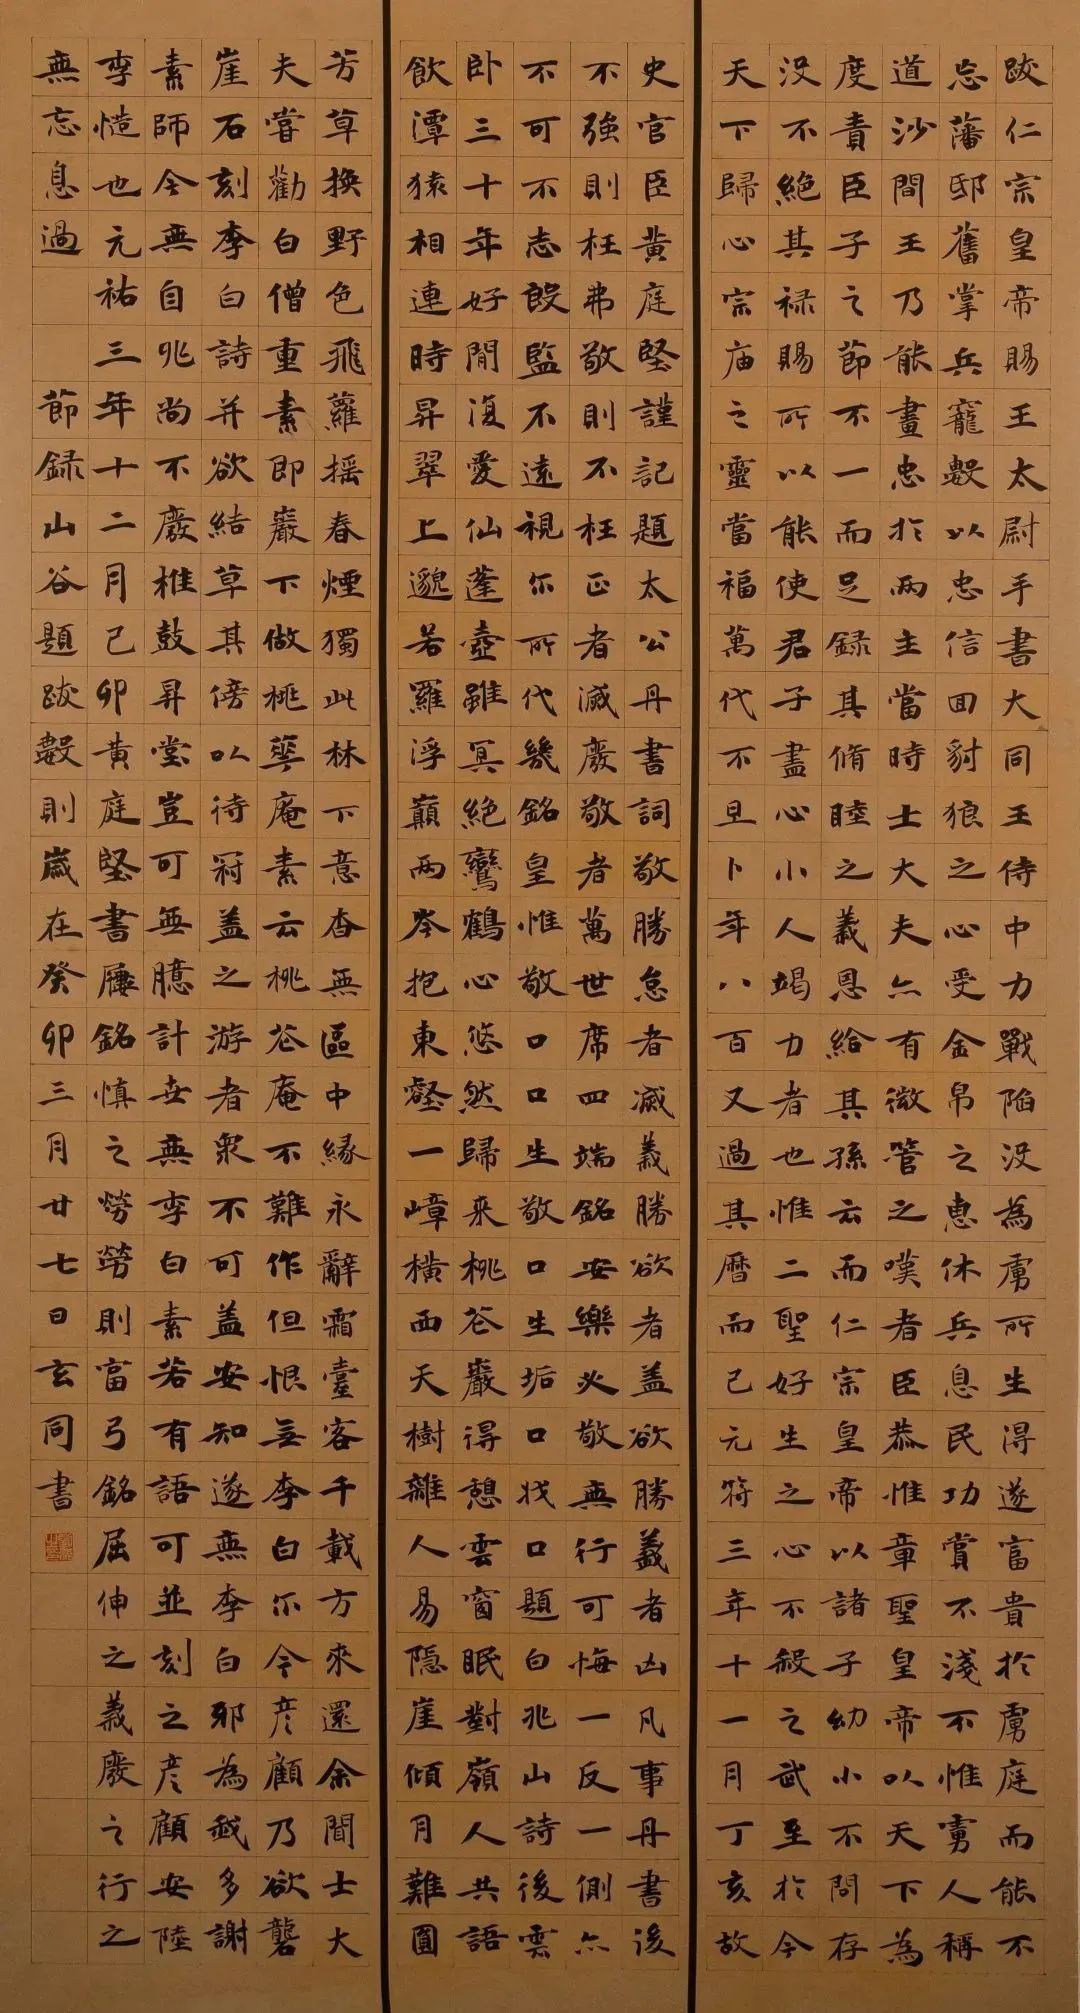 跋仁宗皇帝賜王太尉手書大同王侍中力戰陷没為虜所生得遂富貴於虜庭而能不
忘藩邸舊掌兵寵數以忠信回豺狼之心受金帛之惠休兵息民功賞不淺不惟虜人稱
道沙間王乃能畫忠於兩主當時士大夫亦有微管之嘆者臣恭惟章聖皇帝以天下為
度責臣子之節不一而足録其脩睦之義恩給其孫云而仁宗皇帝以諸子幼小不問存
没不絶其禄賜所以能使君子盡心小人竭力者也惟二聖好生之心不殺之武至於今
天下歸心宗庙之靈當福萬代不旦卜年八百又過其曆而已元符三年十一月丁亥故
史官臣黄庭堅謹記題太公丹書詞敬勝怠者滅義勝欲者盖欲勝義者凶凡事丹書後
不強則枉弗敬則不枉正者滅廢敬者萬世席四端銘安樂必敬無行可悔一反一側亦
不可不志殷監不遠視尔所代幾銘皇惟敬口口生敬口生垢口戕口題白兆山詩後雲
卧三十年好閒復愛仙蓬壺雖冥絶鸞鶴心悠然歸来桃花巖得憩雲窗眠對嶺人共語
飲潭猿相連時昇翠上邈若羅浮巔兩岑抱東壑一嶂橫西天樹雜人易隱崖傾月難圓
芳草換野色飛蘿搖春煙獨此林下意杳無區中緣永辭霜臺客千載方来還余聞士大
夫嘗勸白僧重素即巖下做桃華庵素云桃花庵不難作但恨無李白尔今彦顧乃欲礱
崖石刻李白詩并欲結草其傍以待冠盖之游者衆不可盖安知遂無李白邪為我多謝
素師今無自兆尚不廢椎鼓昇堂豈可無臆計世無李白素若有語可並刻之彦顧安陸
李慥也元祐三年十二月己卯黄庭堅書屨銘慎之勞勞則富弓銘屈伸之義廢之行之
無忘息過
節録山谷題跋數則歲在癸卯三月廿七日玄同書